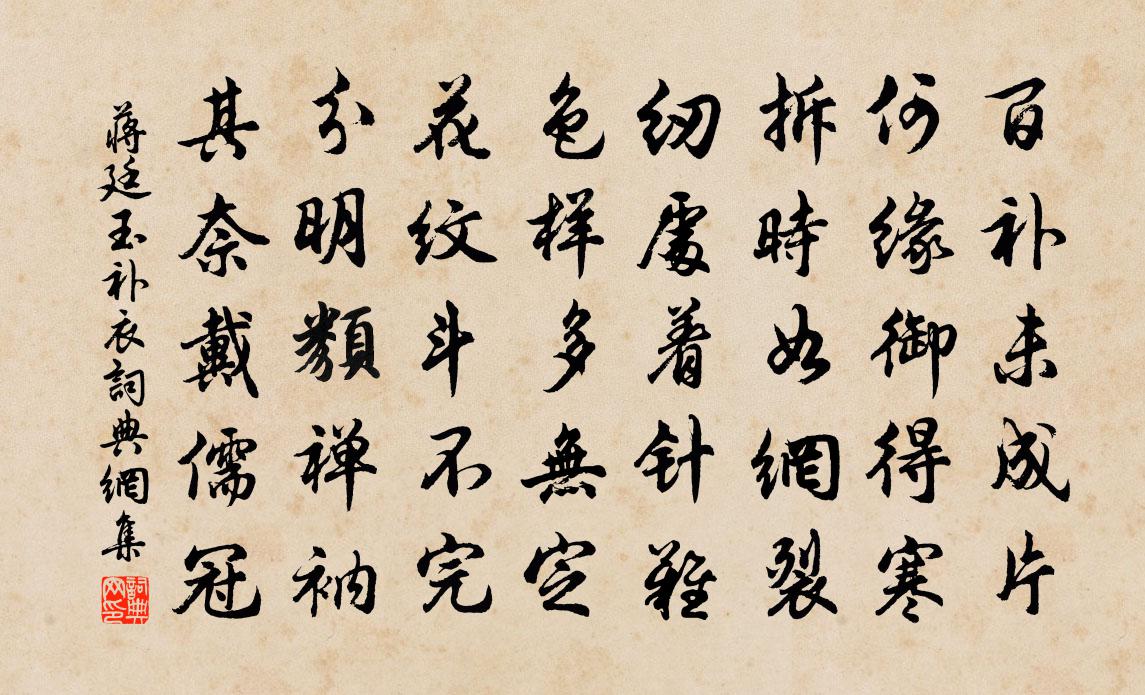 百补未成片
何缘御得寒
拆時如網裂
纫處着针難
色样多無定
花纹斗不完
分明類禅衲
其奈戴儒冠
蒋廷玉补衣詞典網集
詞典网印